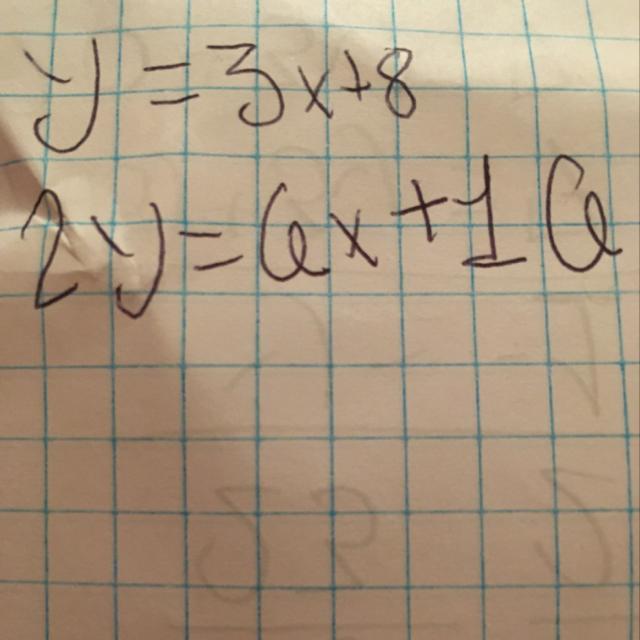 y=3x+8
2y=6x+16